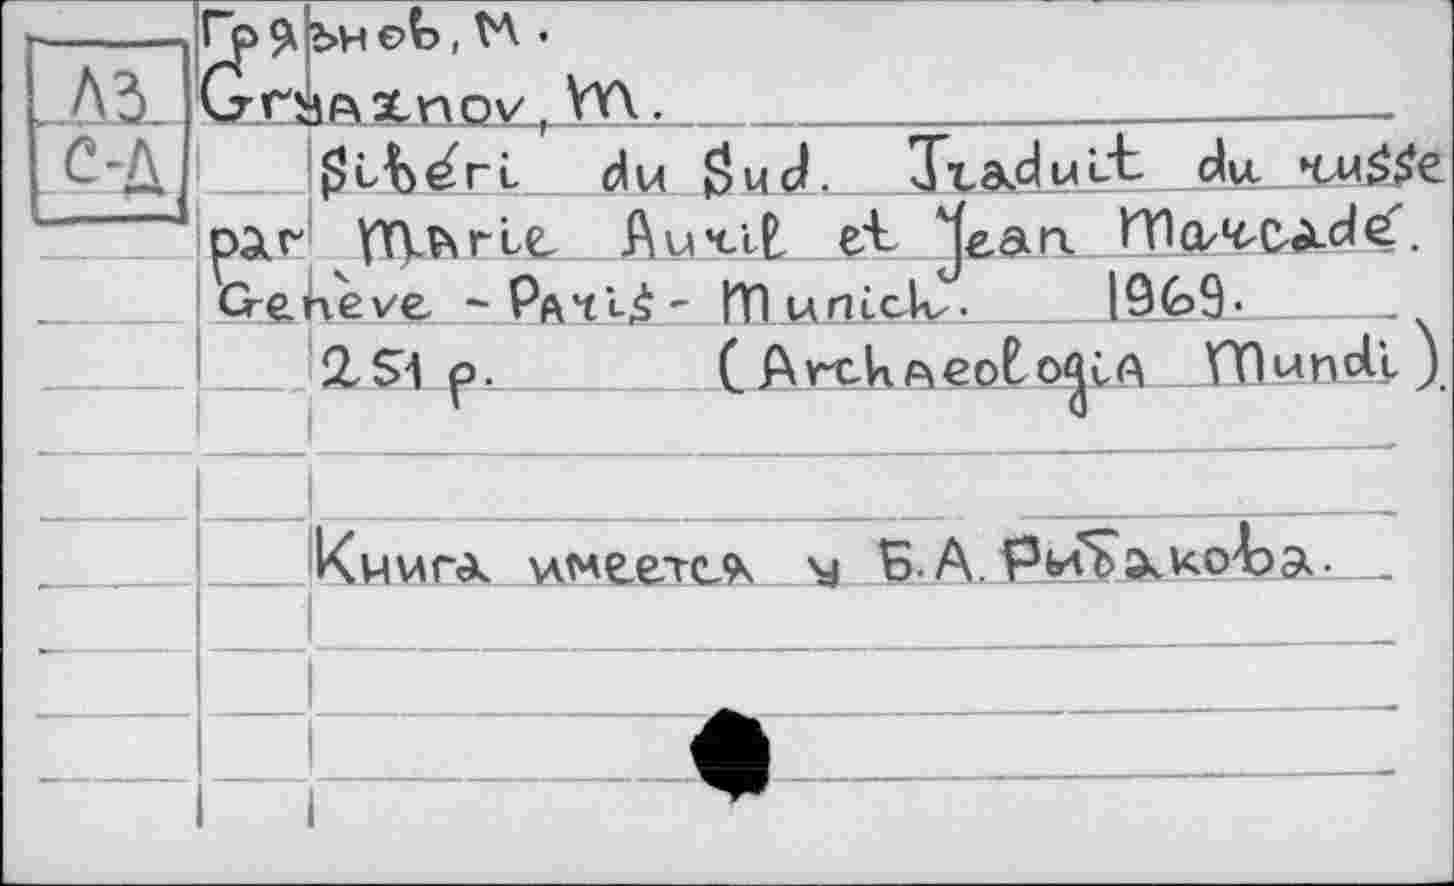 Грязнов, М.
ЛЗ
Gryaznov, M.
С-Д
Sibéri du Sud. Traduit du russe
par Marie Avril et Jean Marcadé.
Genève - Paris - Munich. 1969.
251 p. (Archaeologia Mundi).
Книга имеется у Б.А. Рыбакова.